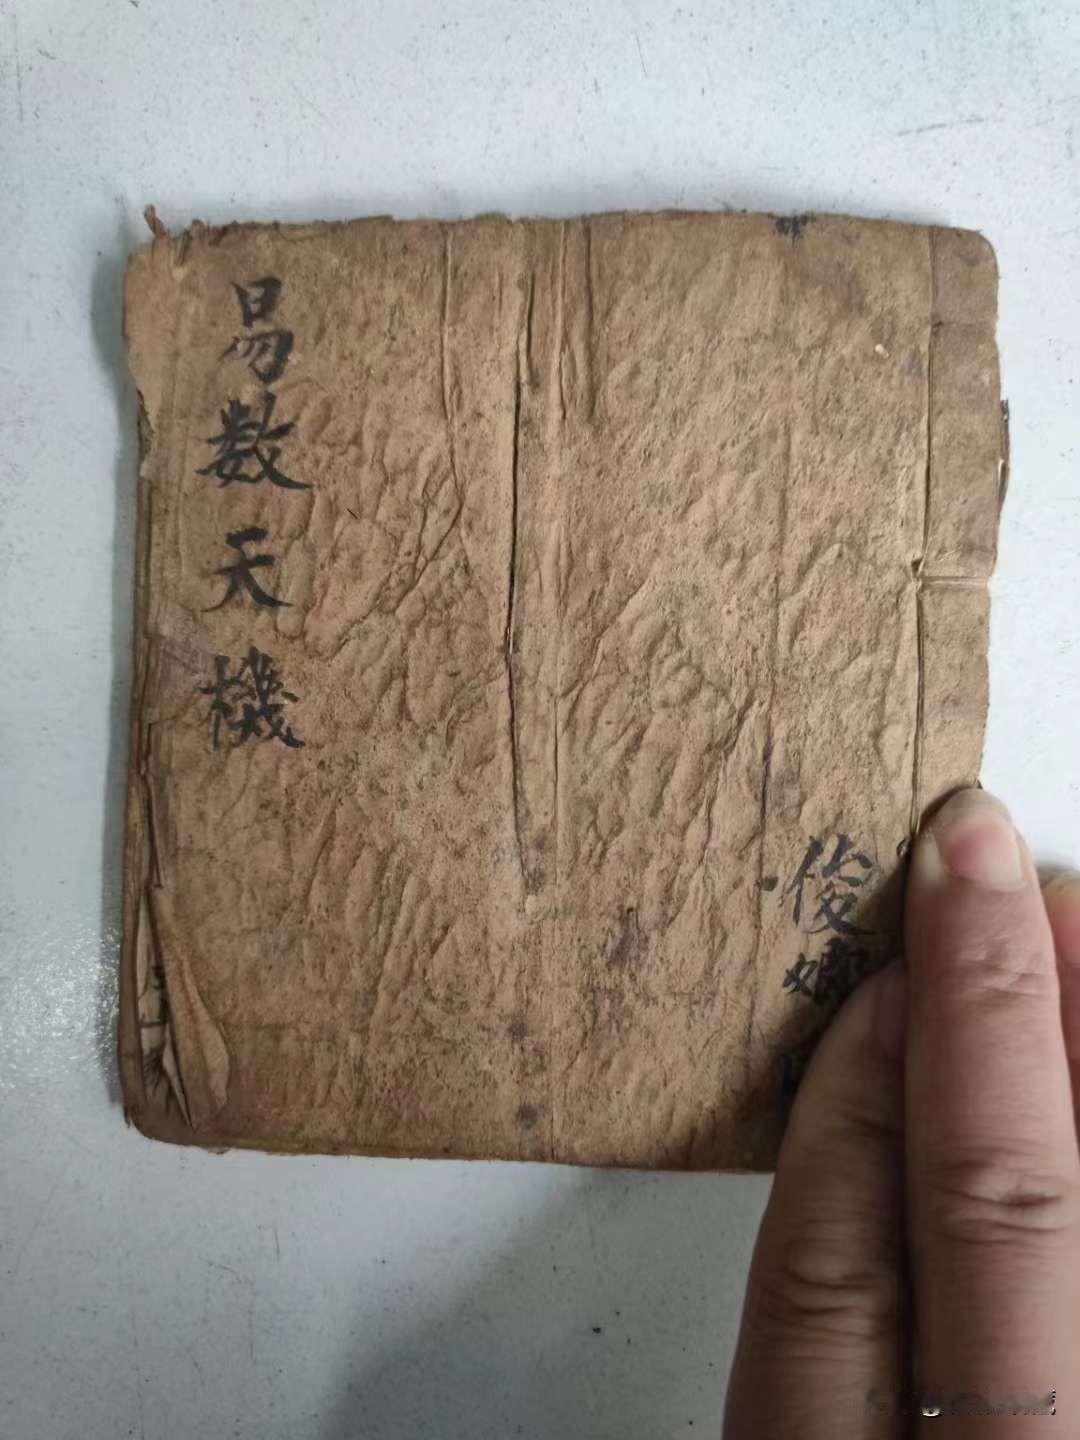 易数天機
俊